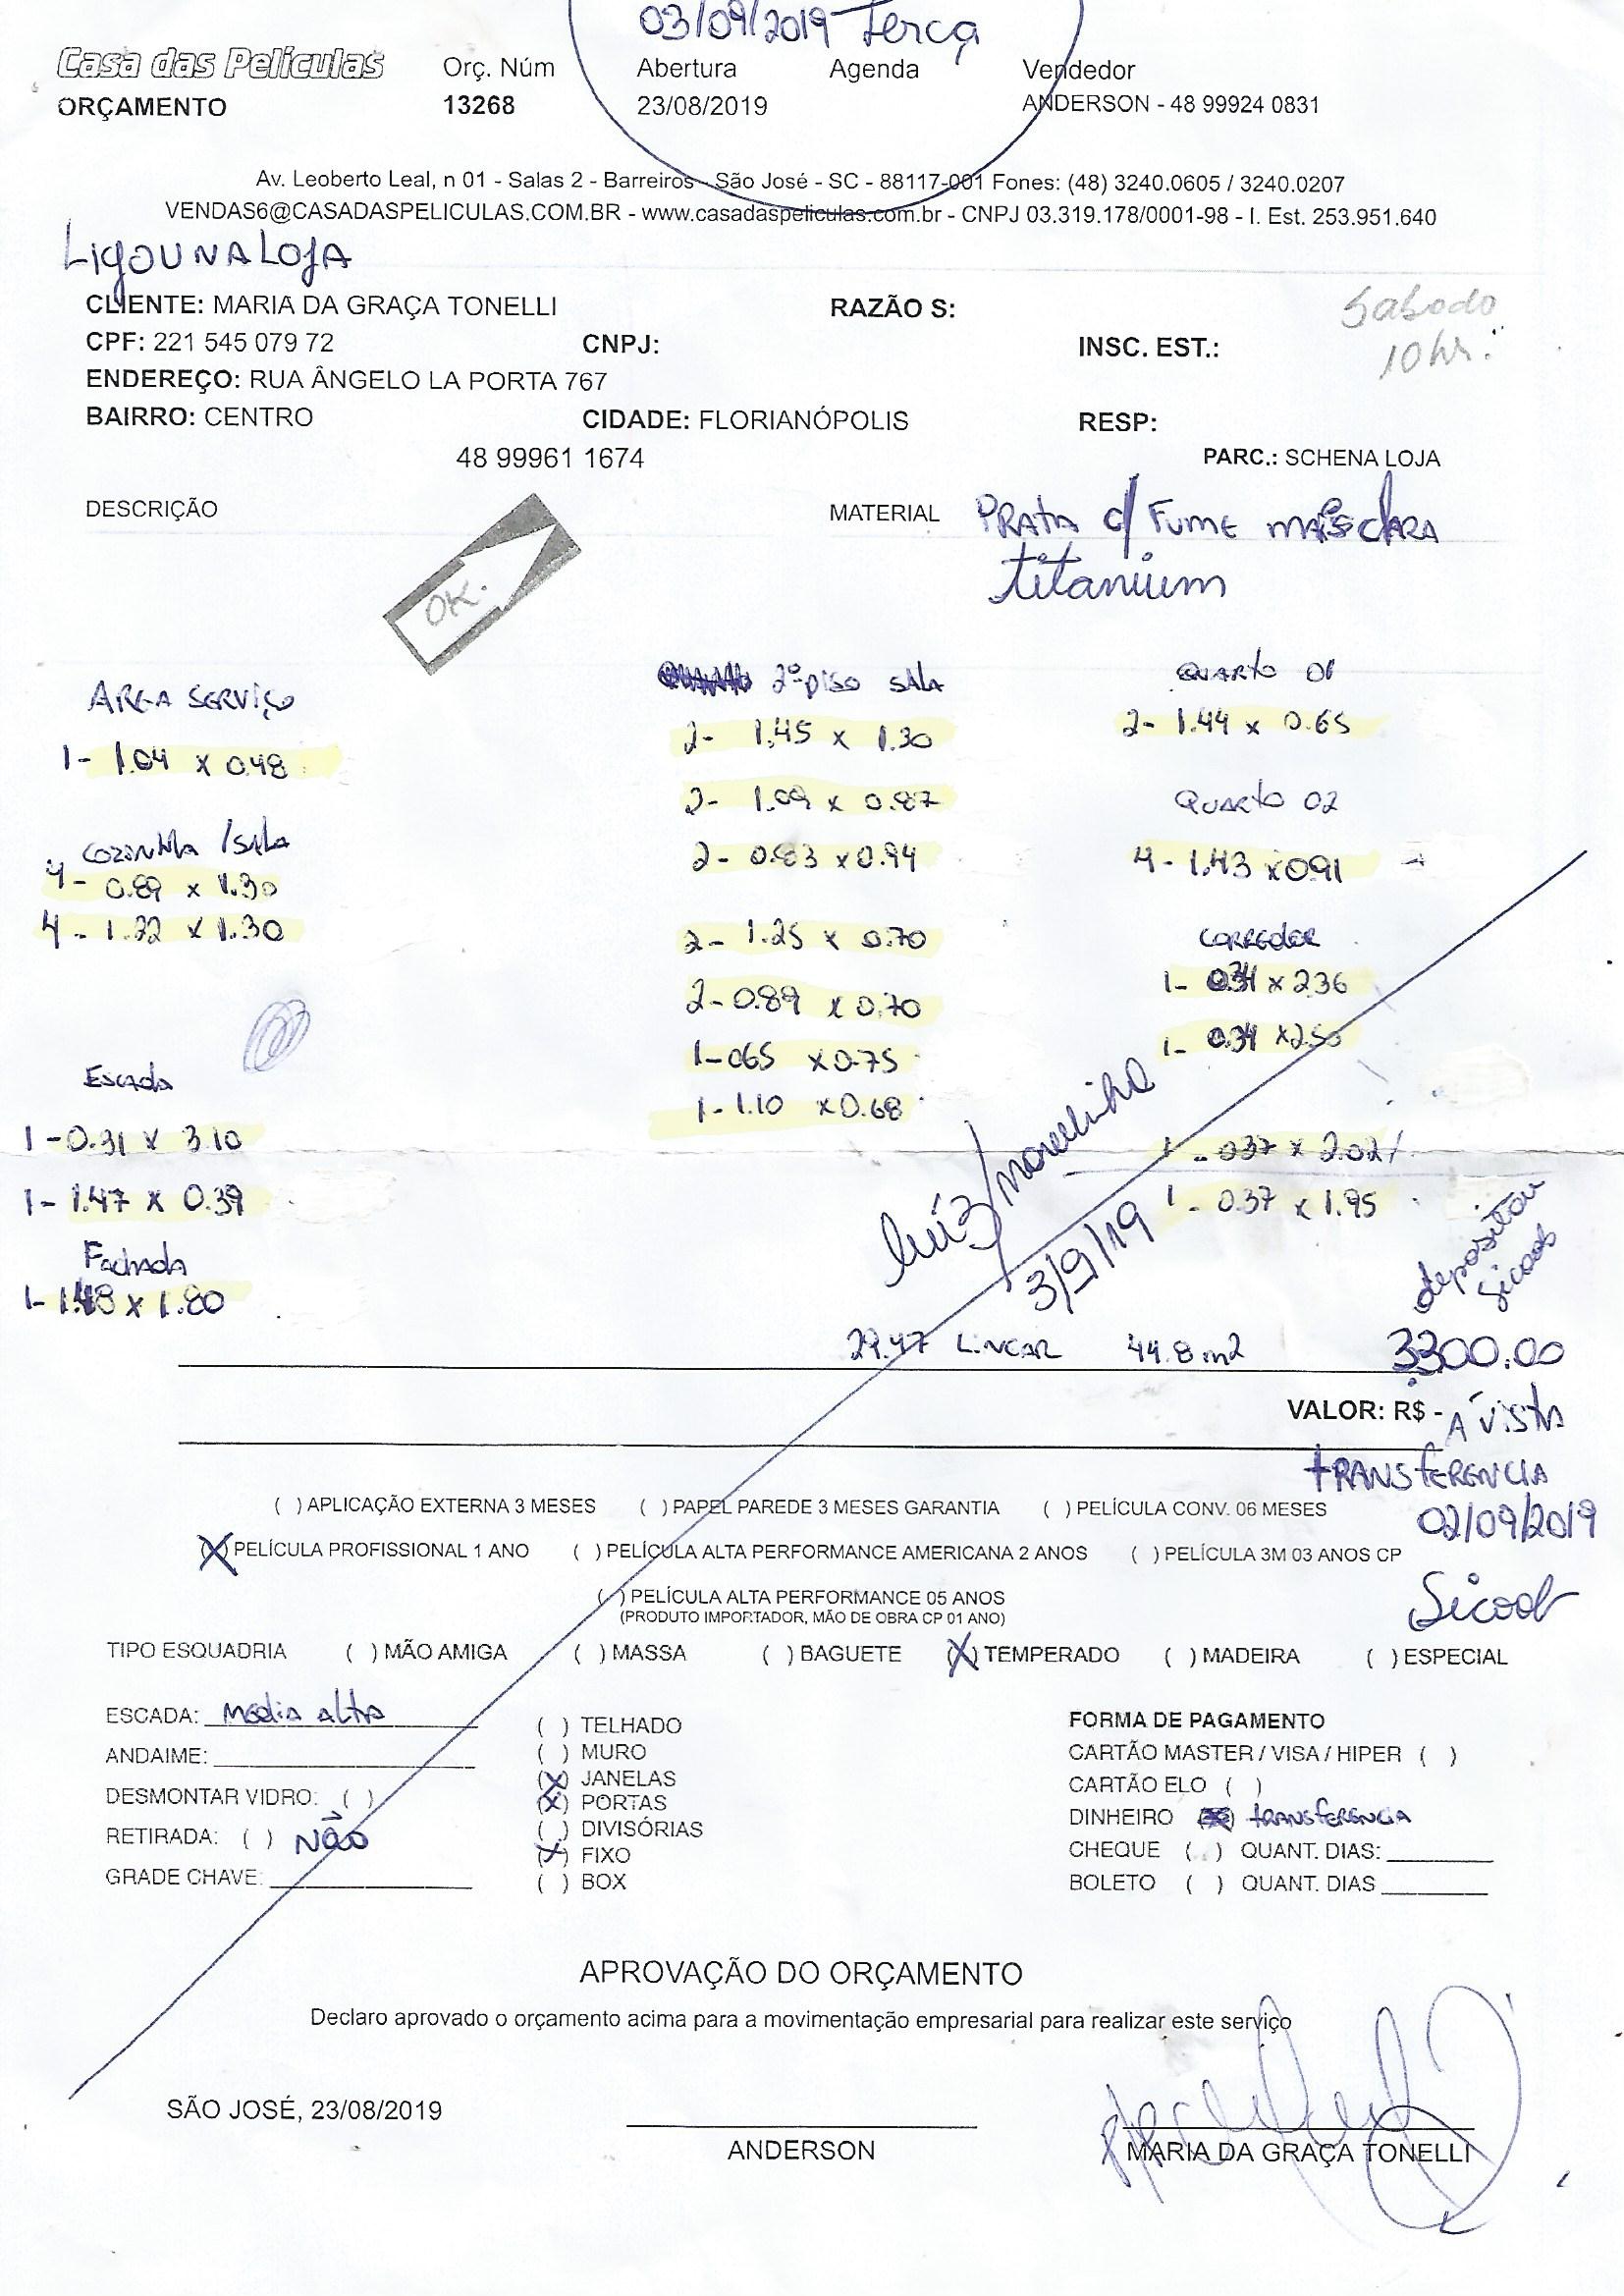 03/09/2019 Terça
Casa das Películas Orç. Núm Abertura Agenda Vendedor
ORÇAMENTO 13268 23/08/2019 ANDERSON - 48 99924 0831
Av. Leoberto Leal, n 01 - Salas 2 - Barreiros - São José - SC - 88117-001 Fones: (48) 3240.0605 / 3240.0207
VENDAS6@CASADASPELICULAS.COM.BR - www.casadaspeliculas.com.br - CNPJ 03.319.178/0001-98 - I. Est. 253.951.640
LIGOU NA LOJA
CLIENTE: MARIA DA GRAÇA TONELLI RAZÃO S:
Sabado
10 hr.
CPF: 221 545 079 72 CNPJ: INSC. EST.:
ENDEREÇO: RUA ÂNGELO LA PORTA 767
BAIRRO: CENTRO CIDADE: FLORIANÓPOLIS RESP:
48 99961 1674 PARC.: SCHENA LOJA
DESCRIÇÃO MATERIAL PRATA c/ FUME mais clARA
titanium
OK.
AREA SERVIÇO
1- 1.04 x 0.48
COZINHA / SALA
4- 0.89 x 1.30
4- 1.22 x 1.30
Escada
1- 0.31 x 3.10
1- 1.47 x 0.39
Fachada
1- 1.48 x 1.80
2º piso SALA
2- 1.45 x 1.30
2- 1.09 x 0.87
2- 0.83 x 0.94
2- 1.25 x 0.70
2- 0.89 x 0.70
1- 065 x 0.75
1- 1.10 x 0.68
QUARTO 01
2- 1.44 x 0.65
QUARTO 02
4- 1.43 x 0.91
CORREDOR
1- 0.34 x 2.36
1- 0.34 x 2.50
1- 037 x 2.02
1- 0.37 x 1.95
luiz/
3/9/19
depositou
sicoob
29.47 LINEAR 44.8 m2 3300.00
VALOR: R$ - A vista
TRANSFERENCIA
02/09/2019
Sicoob
( ) APLICAÇÃO EXTERNA 3 MESES ( ) PAPEL PAREDE 3 MESES GARANTIA ( ) PELÍCULA CONV. 06 MESES
(X) PELÍCULA PROFISSIONAL 1 ANO ( ) PELÍCULA ALTA PERFORMANCE AMERICANA 2 ANOS ( ) PELÍCULA 3M 03 ANOS CP
( ) PELÍCULA ALTA PERFORMANCE 05 ANOS
(PRODUTO IMPORTADOR, MÃO DE OBRA CP 01 ANO)
TIPO ESQUADRIA ( ) MÃO AMIGA ( ) MASSA ( ) BAGUETE (X) TEMPERADO ( ) MADEIRA ( ) ESPECIAL
ESCADA: Media alta
ANDAIME:
DESMONTAR VIDRO: ( )
RETIRADA: ( ) NÃO
GRADE CHAVE:
( ) TELHADO
( ) MURO
(X) JANELAS
(X) PORTAS
( ) DIVISÓRIAS
(X) FIXO
( ) BOX
FORMA DE PAGAMENTO
CARTÃO MASTER / VISA / HIPER ( )
CARTÃO ELO ( )
DINHEIRO (X) TRANSFERENCIA
CHEQUE ( ) QUANT. DIAS:
BOLETO ( ) QUANT. DIAS
APROVAÇÃO DO ORÇAMENTO
Declaro aprovado o orçamento acima para a movimentação empresarial para realizar este serviço
SÃO JOSÉ, 23/08/2019
ANDERSON MARIA DA GRAÇA TONELLI